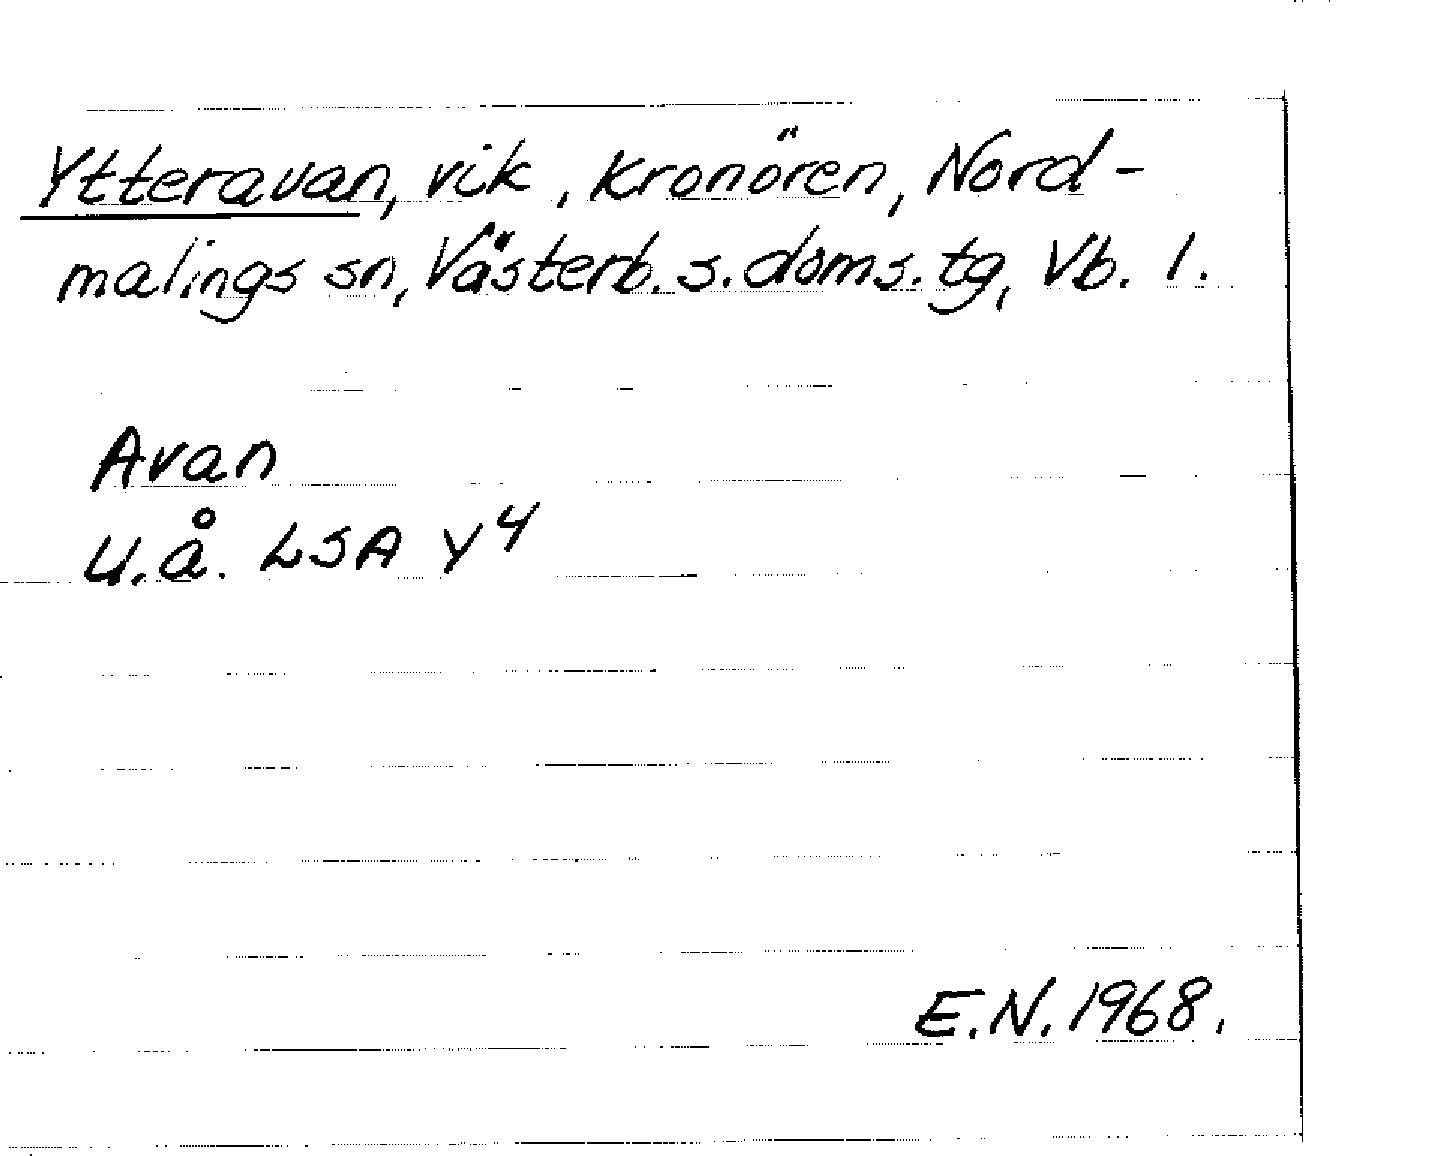 Ytteravan, vik, Kronören, Nord-
malings sn, Västerb. s. doms. tg, Vb. l.
Avan
U.å. LSA Y⁴
E.N. 1968.